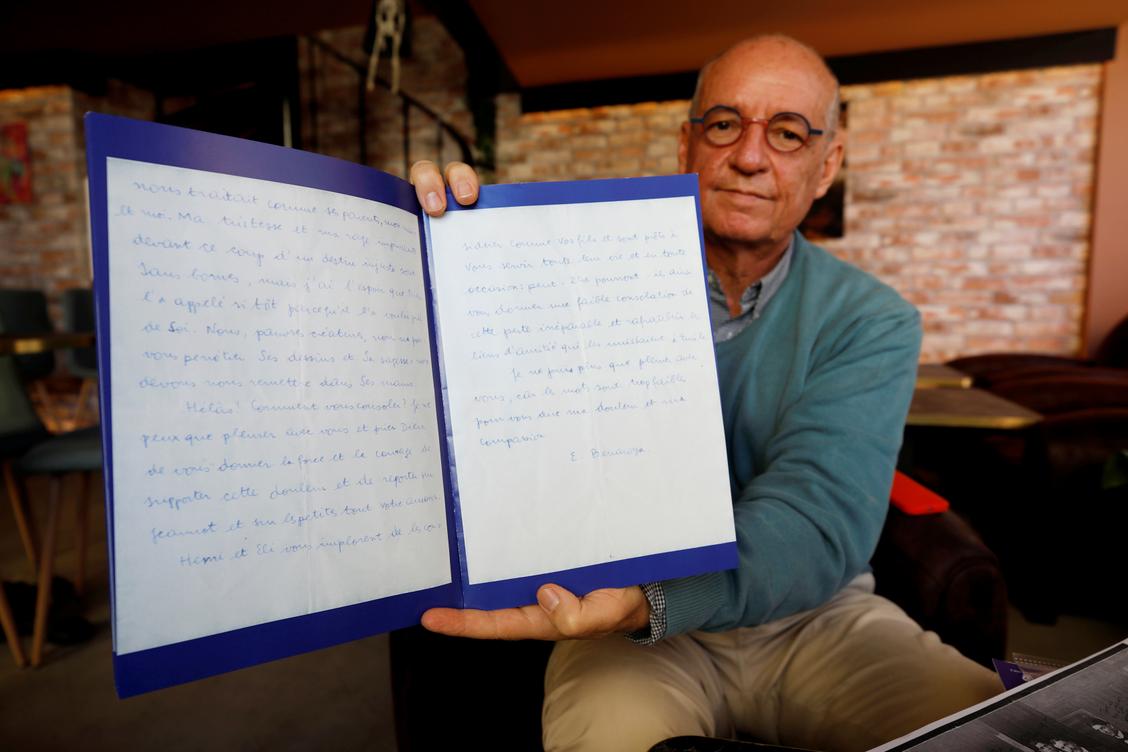 nous traitait comme ses parents, mon
et moi. Ma tristesse et ma rage
devant ce coup d'un destin injuste sont
sans bornes, mais j'ai l'espoir que
l'a appellé si tôt parcequ'il l'a voulu
de Soi. Nous, pauvres créatures, nous ne
vous pénétrer Ses dessins et Sa sagesse
devons nous remettre dans Ses mains.
Hélas! Comment vous consoler? Je ne
peux que pleurer avec vous et prier Dieu
de vous donner la force et le courage de
supporter cette douleur et de reporter sur
Jeannot et sur les petits tout votre amour.
Henri et Eli vous implorent de les con-
sidérer comme vos fils et sont prêts à
vous servir toute leur vie et en toute
occasions
vous donner une faible consolation de
cette perte irréparable et
liens d'amitié qui les unissaient à
Je ne puis plus que pleurer avec
vous, car les mots sont trop faibles
pour vous dire ma douleur et ma
compassion.
E. Benaroya.